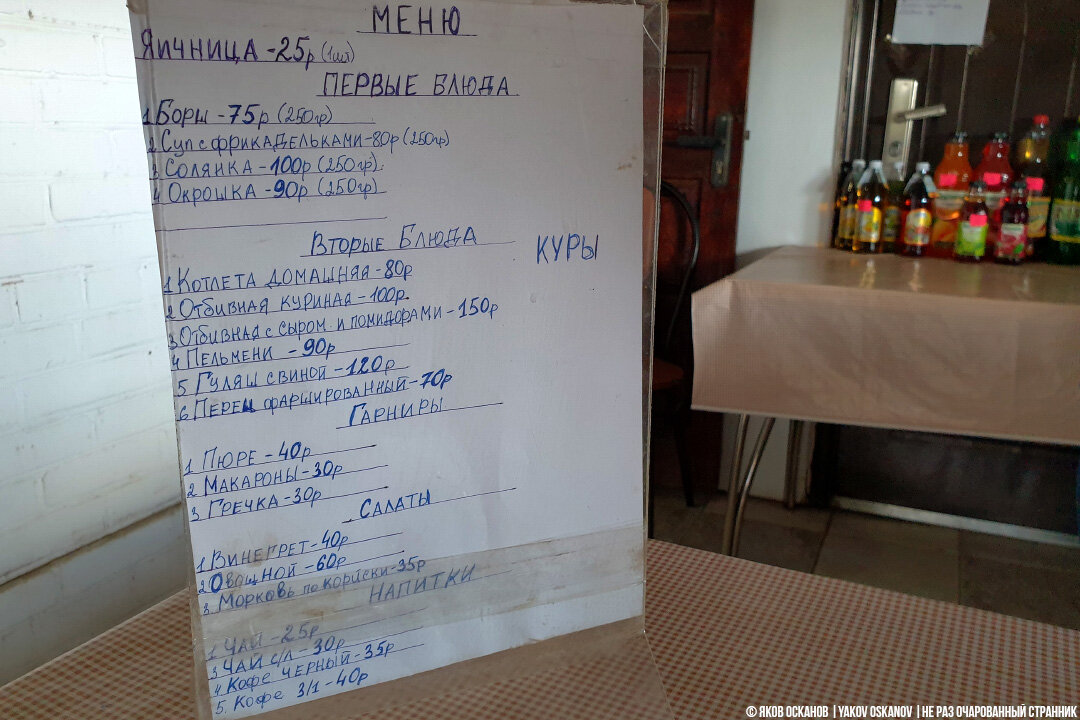 МЕНЮ
ЯИЧНИЦА - 25р (1шт)
ПЕРВЫЕ БЛЮДА
1 БОРЩ - 75р (250гр)
2 СУП С ФРИКАДЕЛЬКАМИ - 80р (250гр)
3 СОЛЯНКА - 100р (250гр)
4 ОКРОШКА - 90р (250гр)
ВТОРЫЕ БЛЮДА
КУРЫ
1 КОТЛЕТА ДОМАШНЯЯ - 80р
2 ОТБИВНАЯ КУРИНАЯ - 100р
3 ОТБИВНАЯ С СЫРОМ И ПОМИДОРАМИ - 150р
4 ПЕЛЬМЕНИ - 90р
5 ГУЛЯШ СВИНОЙ - 120р
6 ПЕРЕЦ ФАРШИРОВАННЫЙ - 70р
ГАРНИРЫ
1 ПЮРЕ - 40р
2 МАКАРОНЫ - 30р
3 ГРЕЧКА - 30р
САЛАТЫ
1 ВИНЕГРЕТ - 40р
2 ОВОЩНОЙ - 60р
3 МОРКОВЬ ПО КОРЙСКИ - 35р
НАПИТКИ
1 ЧАЙ - 25р
3 ЧАЙ С/Л - 30р
4 КОФЕ ЧЕРНЫЙ - 35р
5. КОФЕ 3/1 - 40р
© ЯКОВ ОСКАНОВ | YAKOV OSKANOV | НЕ РАЗ ОЧАРОВАННЫЙ СТРАННИК